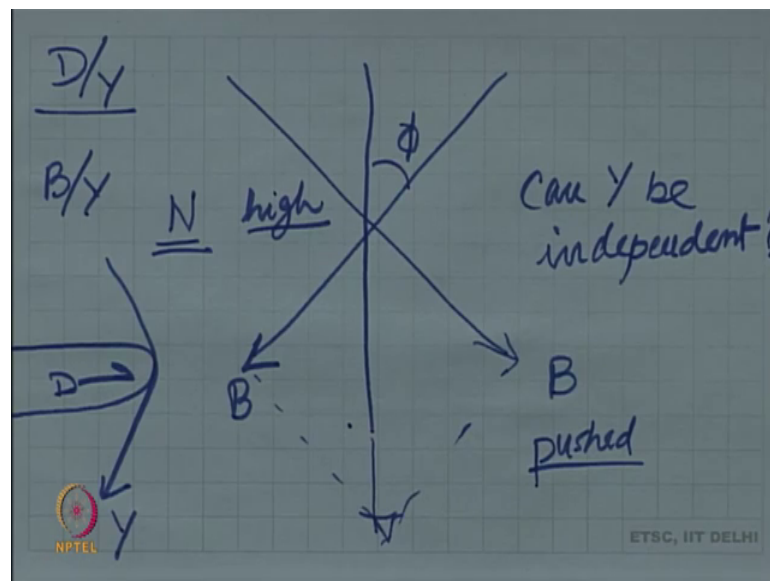 D/Y
B/Y
N
high
ϕ
Can Y be
independent?
D
Y
B
B
pushed
NPTEL
ETSC, IIT DELHI